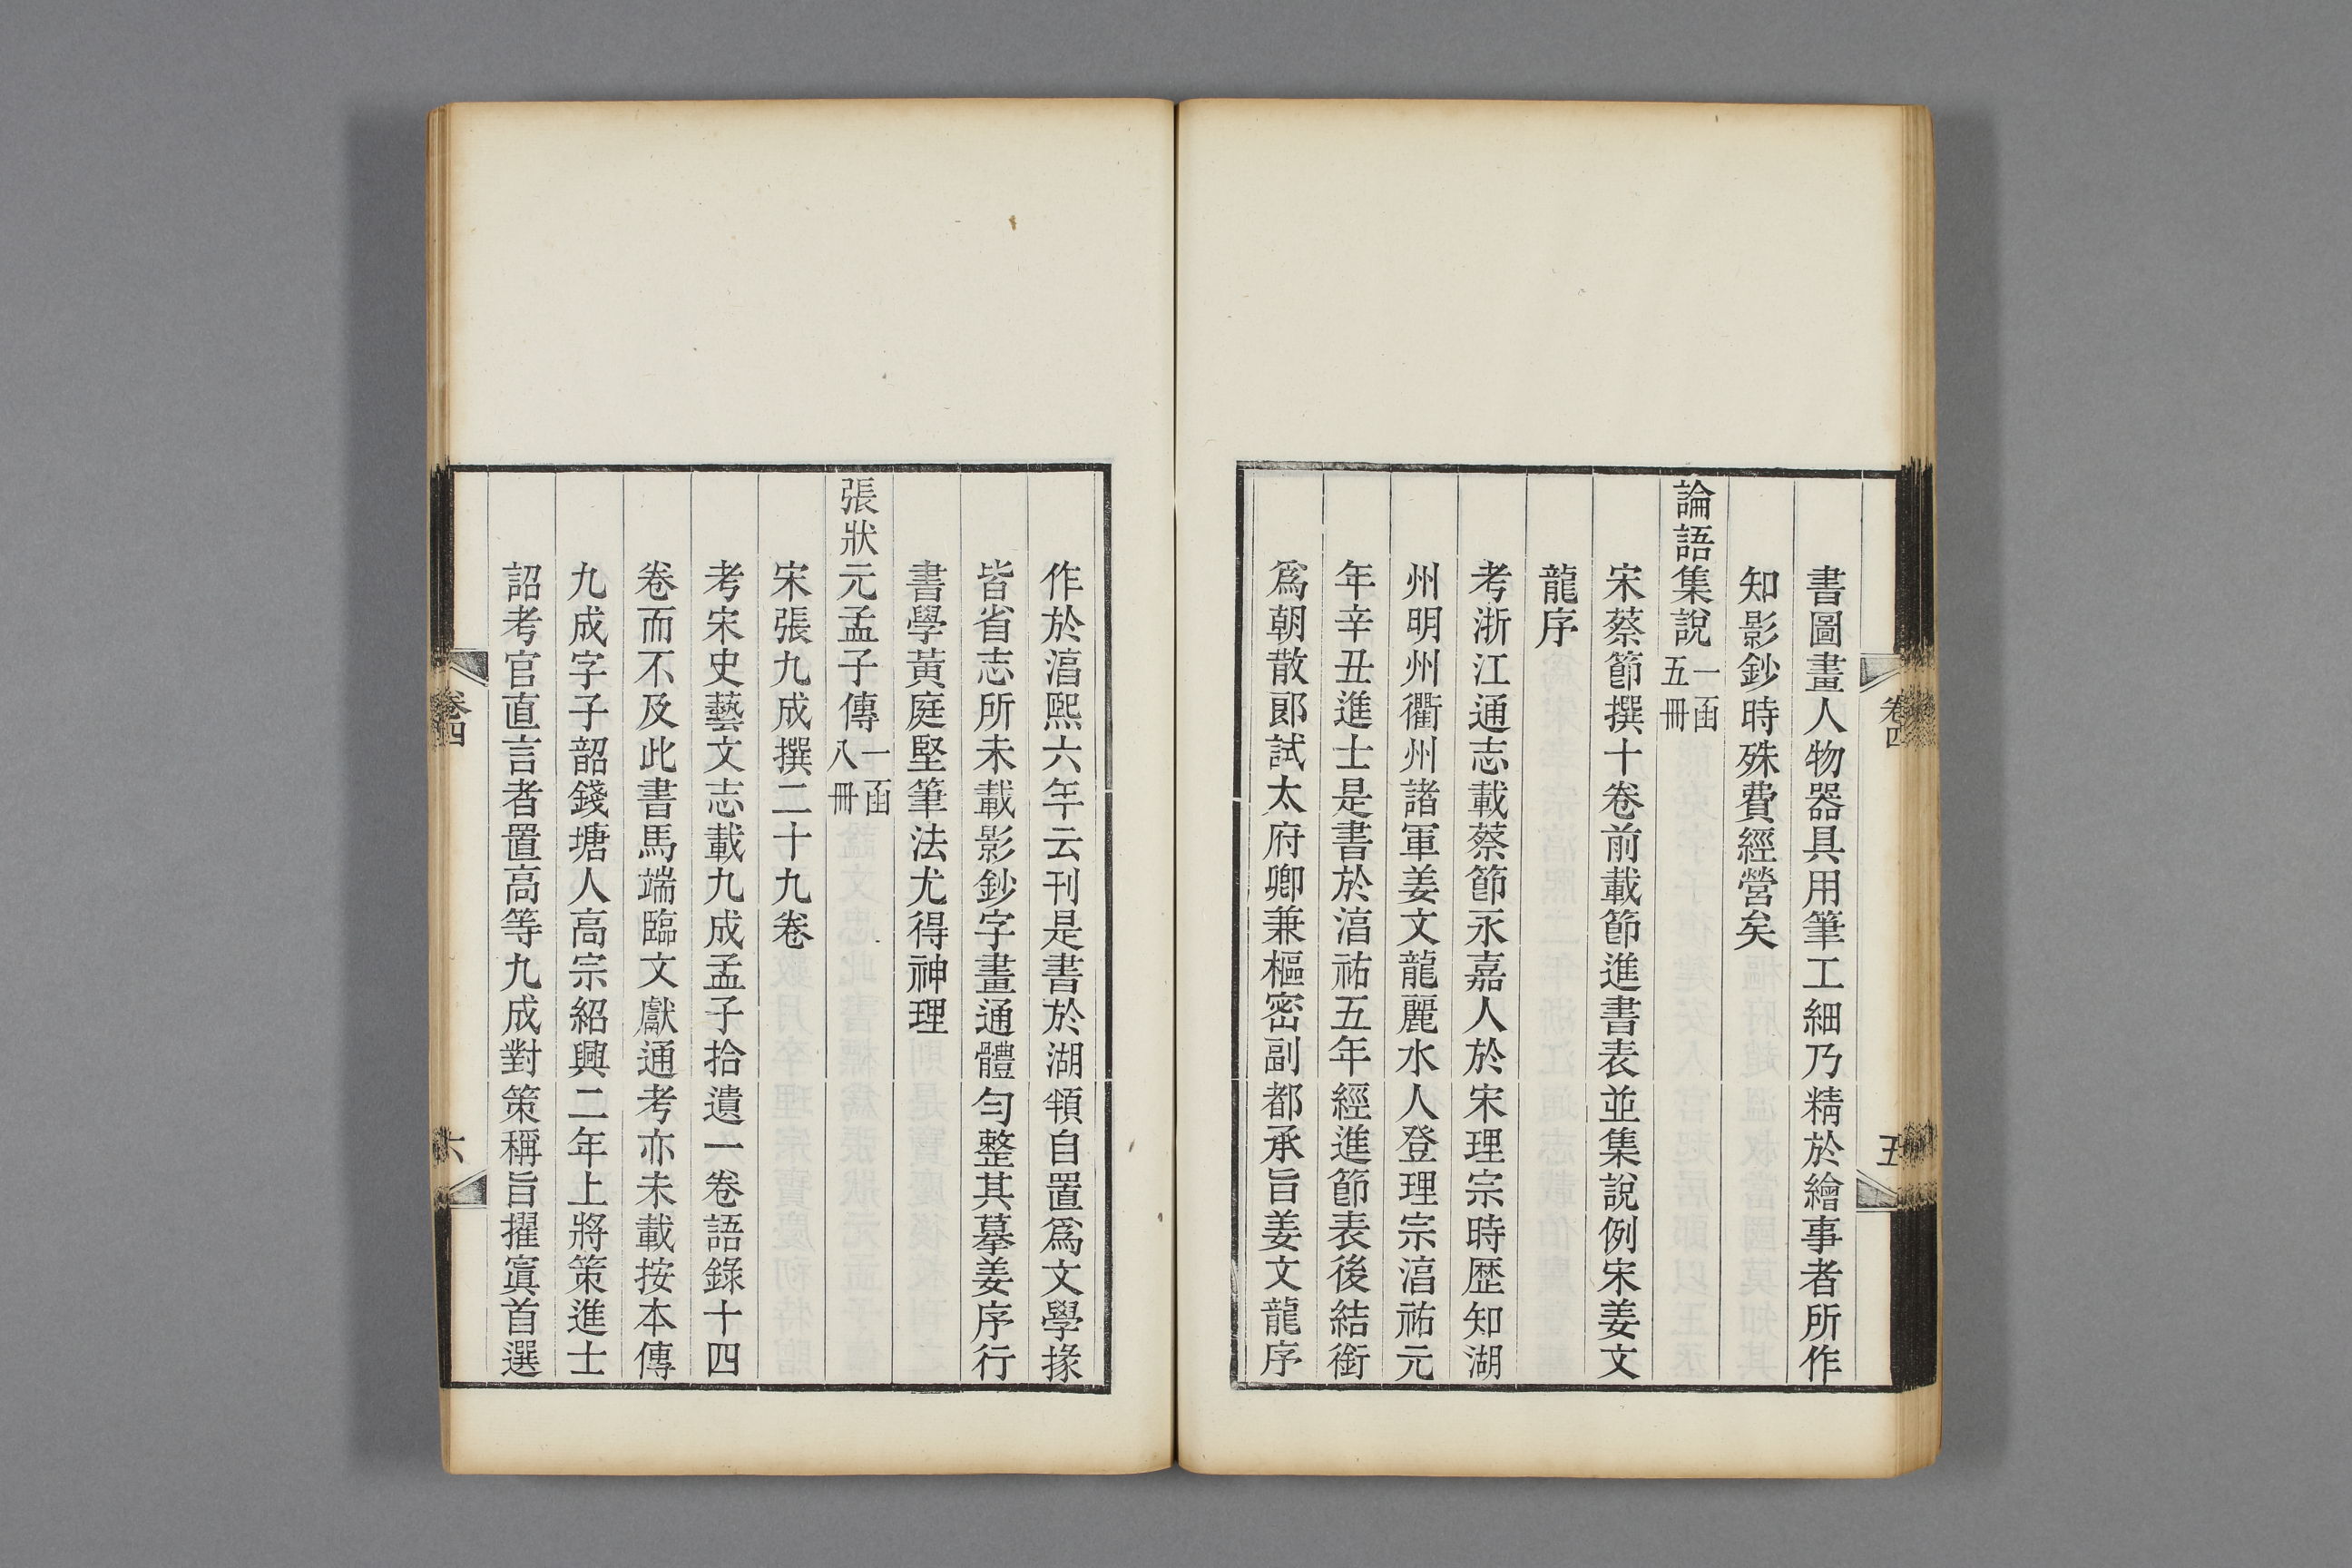 書圖畫人物器具用筆工細乃精於繪事者所作
知影鈔時殊費經營矣
論語集說一函五冊
宋蔡節撰十卷前載節進書表並集說例宋姜文
龍序
考浙江通志載蔡節永嘉人於宋理宗時歷知湖
州明州衢州諸軍姜文龍麗水人登理宗淳祐元
年辛丑進士是書於淳祐五年經進節表後結銜
爲朝散郎試太府卿兼樞密副都承旨姜文龍序
卷四
五
作於淳熙六年云刊是書於湖頖自置爲文學掾
皆省志所未載影鈔字畫通體勻整其摹姜序行
書學黃庭堅筆法尤得神理
張狀元孟子傳一函八冊
宋張九成撰二十九卷
考宋史藝文志載九成孟子拾遺一卷語錄十四
卷而不及此書馬端臨文獻通考亦未載按本傳
九成字子韶錢塘人高宗紹興二年上將策進士
詔考官直言者置高等九成對策稱旨擢寘首選
卷四
六